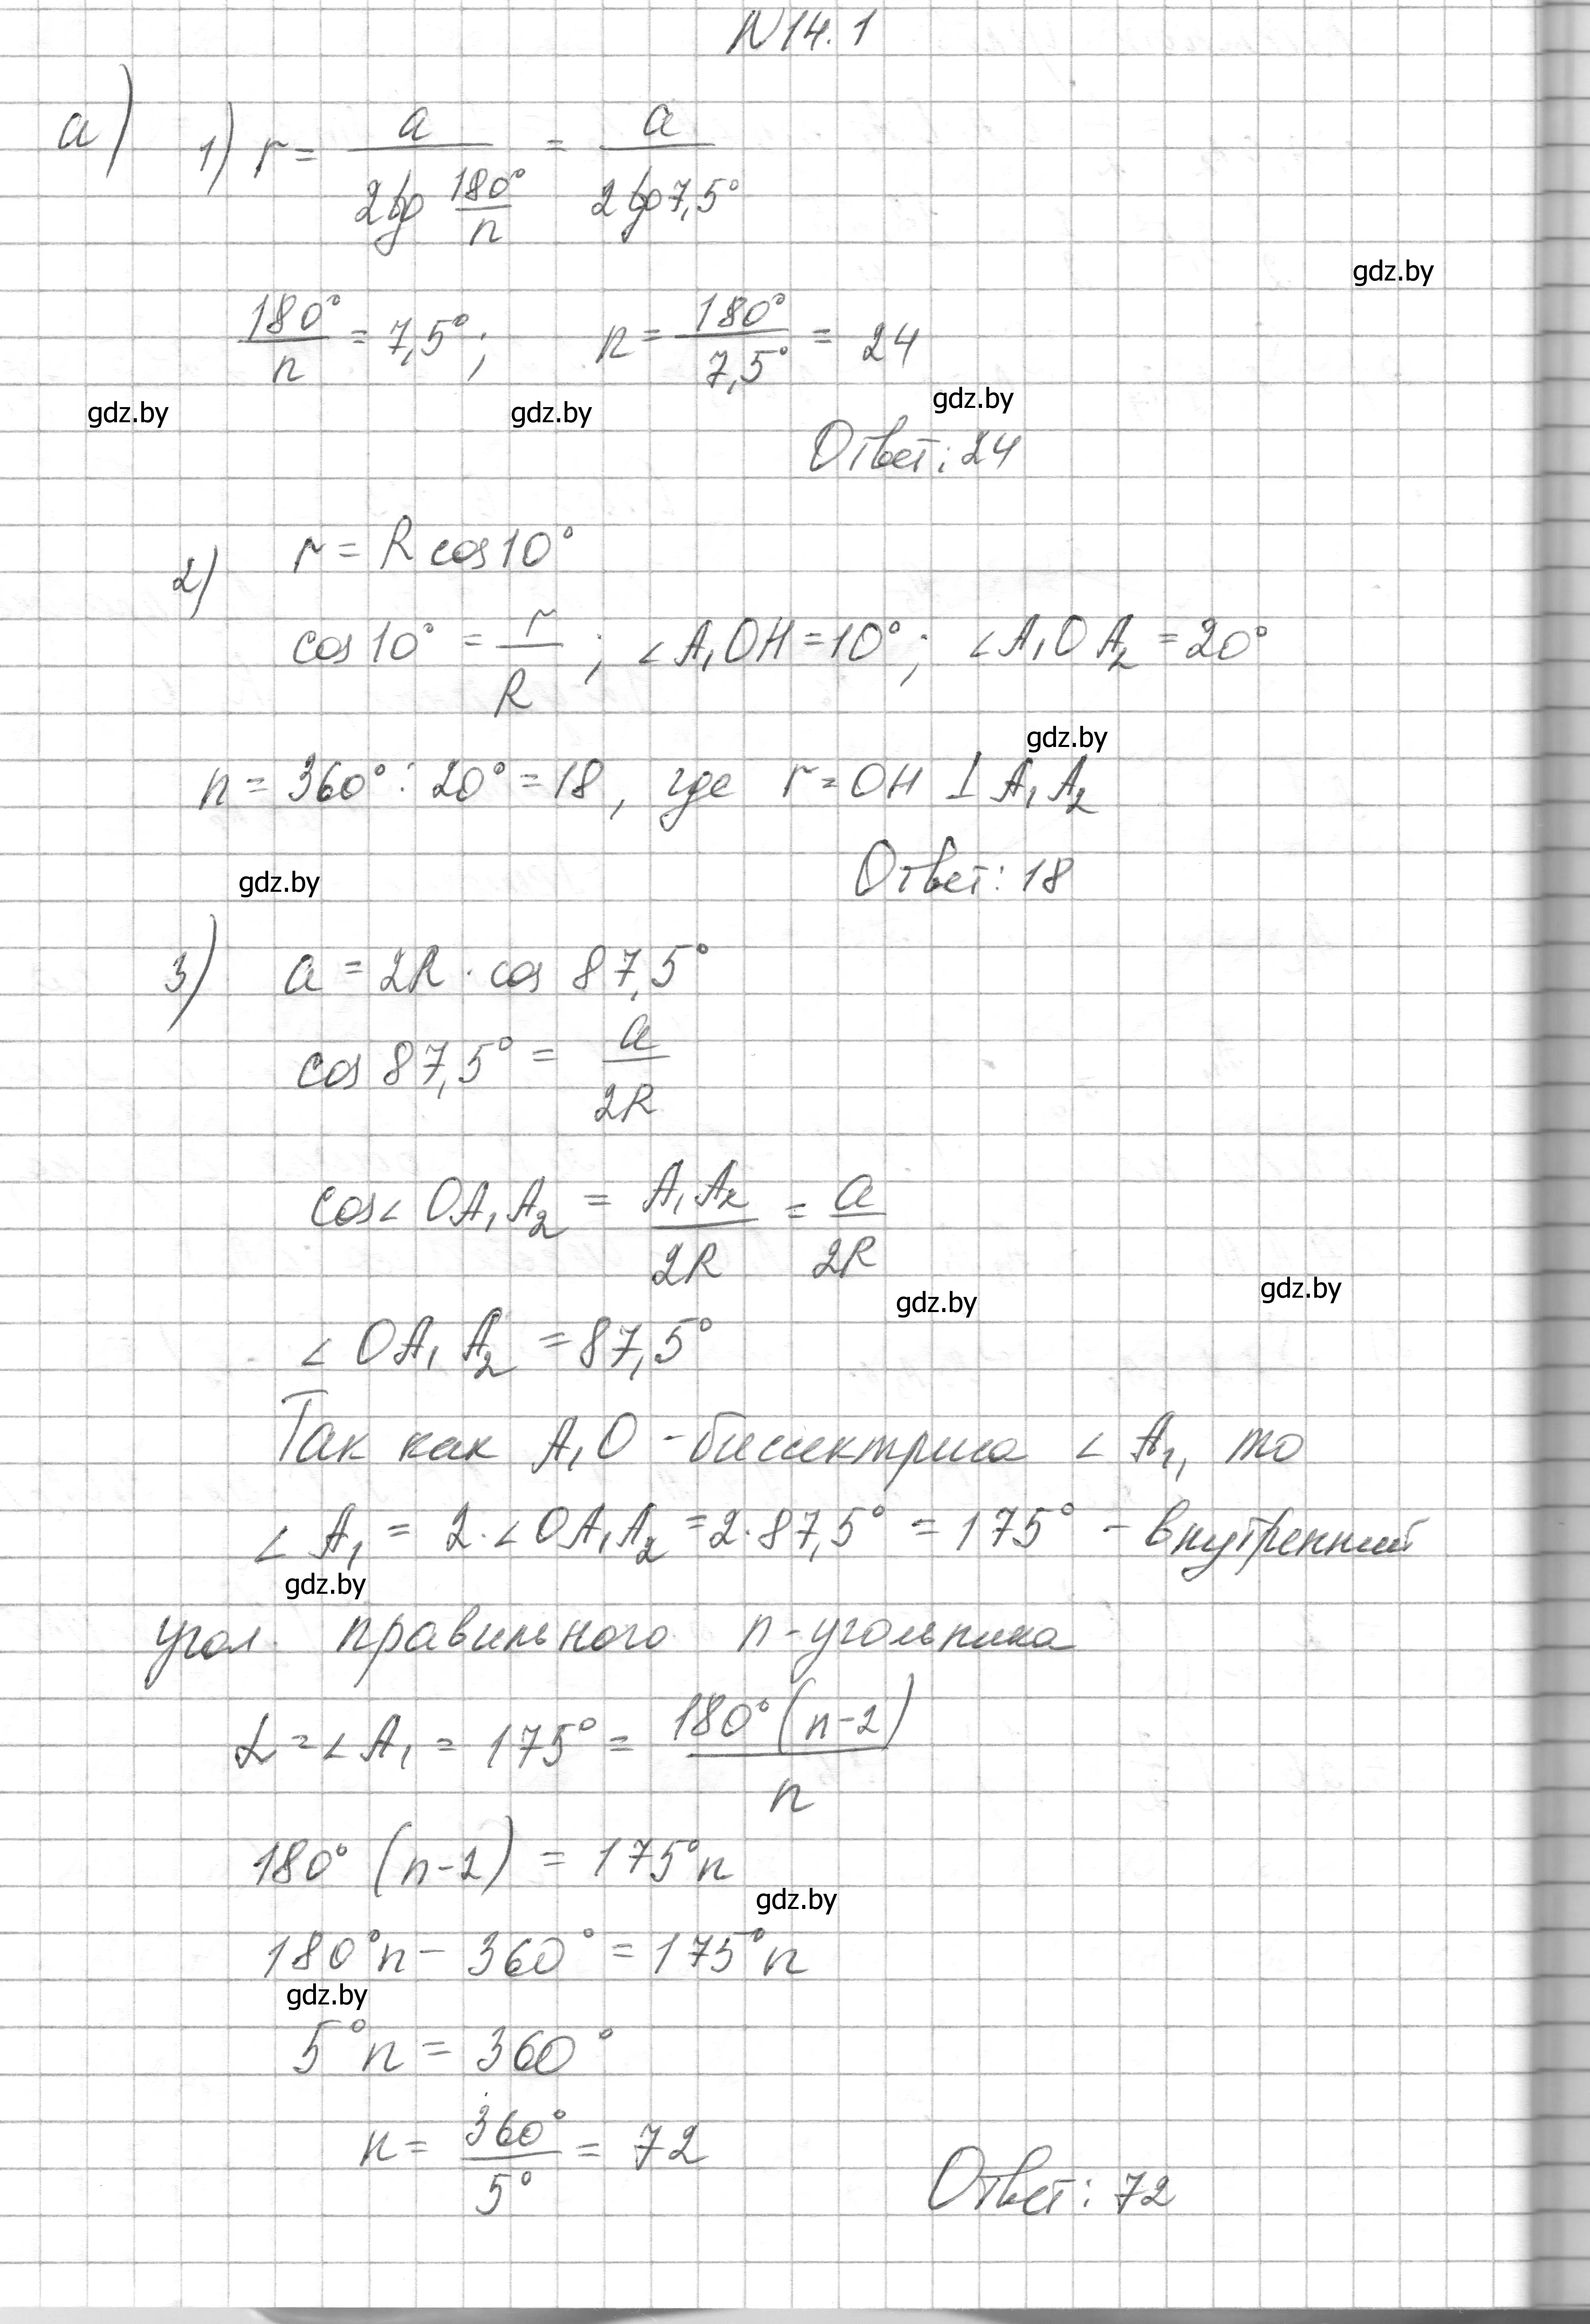 N14.1
а) 1) r = a / (2tg 180°/n) = a / (2tg7,5°)
gdz.by
180°/n = 7,5°; n = 180°/7,5° = 24
gdz.by gdz.by gdz.by
Ответ: 24
2) r = R cos10°
cos10° = r/R ; ∠A₁OH=10°; ∠A₁OA₂=20°
gdz.by
n = 360° : 20° = 18, где r = OH ⊥ A₁A₂
gdz.by
Ответ: 18
3) a = 2R · cos 87,5°
cos 87,5° = a/2R
cos∠OA₁A₂ = A₁A₂/2R = a/2R
gdz.by gdz.by
∠OA₁A₂ = 87,5°
Так как A₁O - биссектриса ∠A₁, то
∠A₁ = 2·∠OA₁A₂ = 2·87,5° = 175° - внутренний
gdz.by
угол правильного n-угольника
α = ∠A₁ = 175° = 180°(n-2)/n
180° (n-2) = 175°n
gdz.by
180°n - 360° = 175°n
gdz.by
5°n = 360°
n = 360°/5° = 72
Ответ: 72